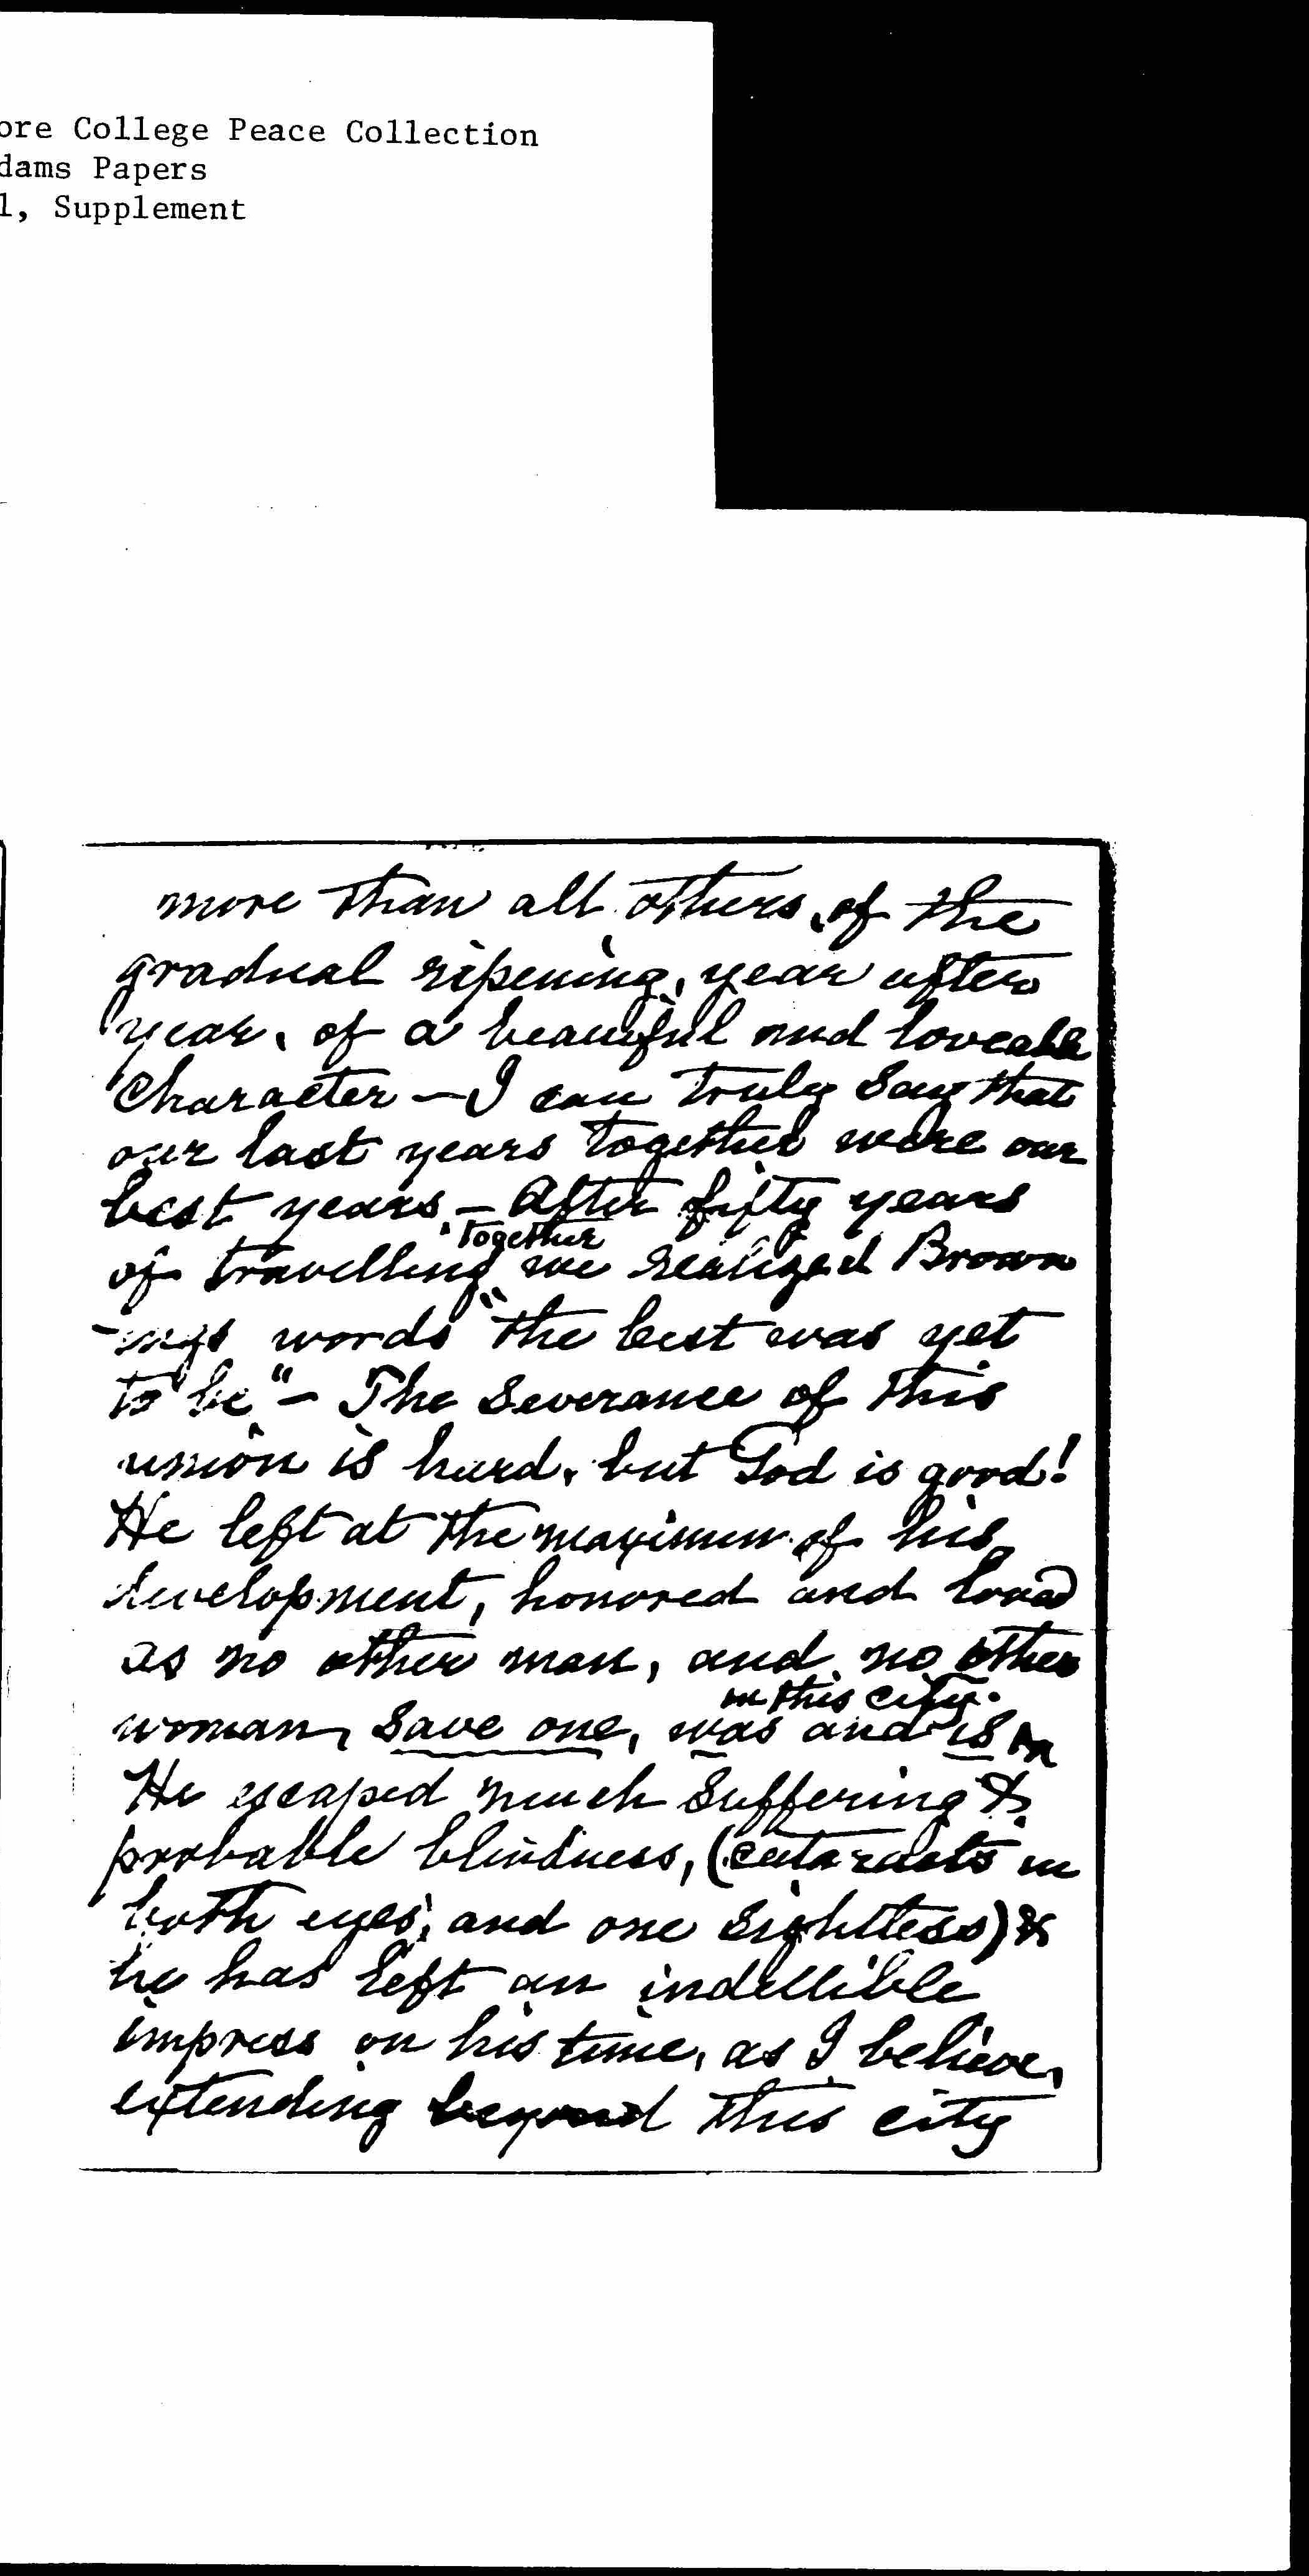 ore College Peace Collection
dams Papers
1, Supplement
more than all others, of the
gradual ripening, year after
year, of a beautiful and loveable
Character — I can truly say that
our last years together were our
best years. — After fifty years
together
of travelling we realized Brown
-ings words "the best was yet
to be" — The severance of this
union is hard, but God is good!
He left at the maximum of his
development, honored and loved
as no other man, and no other
in this city.
woman, save one, was and is
He escaped much suffering &
probable blindness, (cataracts in
both eyes, and one sightless) &
he has left an indellible
impress on his time, as I believe,
extending beyond this city